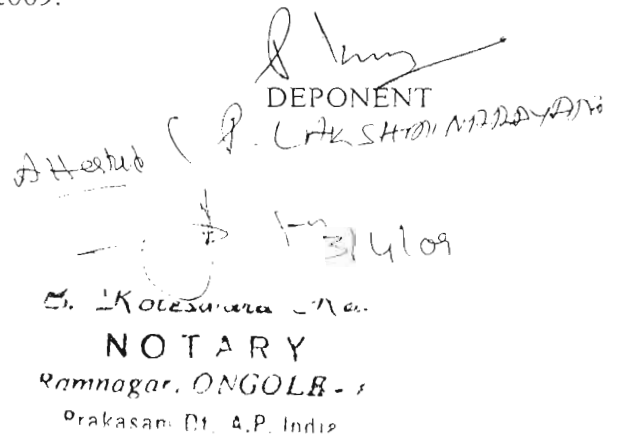 2009.
DEPONENT
Attested ( P. LAKSHMI NARAYANA
3/4/09
Koteswara
NOTARY
Ramnagar, ONGOLE -
Prakasam Dt. A.P. India